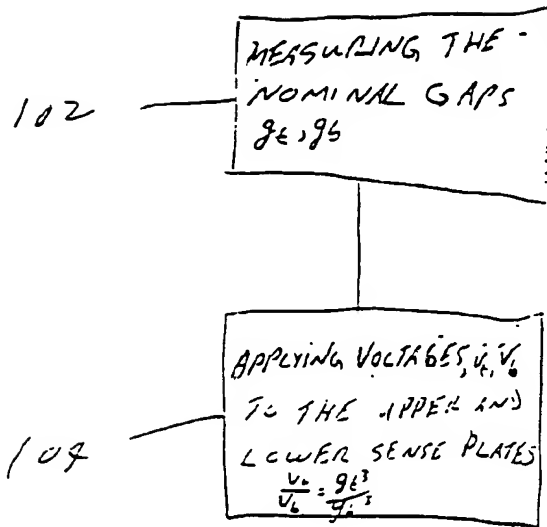 MEASURING THE
NOMINAL GAPS
gt, gb
102
APPLYING VOLTAGES, Vt, Vb
TO THE UPPER AND
LOWER SENSE PLATES
= gt³
104